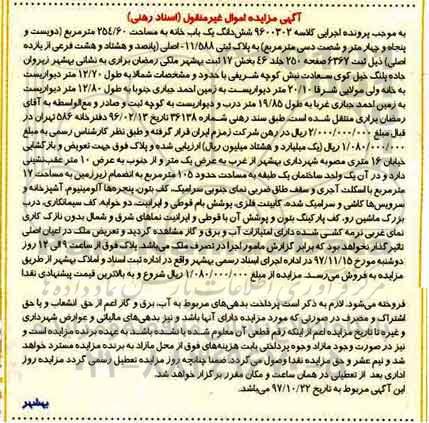 آگهی مزایده اموال غیرمنقول (اسناد رهنی)
به موجب پرونده اجرایی کلاسه ۹۶۰۰۳۰۲ شش‌دانگ یک باب خانه به مساحت ۲۵۴/۶۰ مترمربع (دویست و
پنجاه و چهار متر و شصت دسی مترمربع) به پلاک ثبتی ۱۱/۵۸۸ - اصلی (پانصد و هشتاد و هشت فرعی از یازده
اصلی) ذیل ثبت ۶۳۶۷ صفحه ۲۵۰ جلد ۴۶ بخش ۱۷ ثبت بهشهر ملکی رمضان براری به نشانی بهشهر زیروان
جاده پلنگ خیل کوی سعادت نبش کوچه شریفی با حدود و مشخصات شمالا به طول ۱۲/۷۰ متر دیواریست
به خانه ولی مولایی شرقا ۲۰/۱۰ متر دیواریست به زمین احمد جباری جنوبا به طول ۱۲/۸۰ متر دیواریست
به زمین احمد جباری غربا به طول ۱۹/۸۵ متر درب و دیواریست به کوچه ثبت و صادر و مع‌الواسطه به آقای
رمضان براری منتقل شده است. طبق سند رهنی شماره ۳۶۱۳۸ تاریخ ۹۶/۰۲/۱۳ دفترخانه ۵۸۶ تهران در
قبال مبلغ ۲/۰۰۰/۰۰۰/۰۰۰ ریال در رهن شرکت زمزم ایران قرار گرفته و طبق نظر کارشناس رسمی به مبلغ
۱/۰۸۰/۰۰۰/۰۰۰ ریال (یک میلیارد و هشتاد میلیون ریال) ارزیابی شده و پلاک فوق جهت تعویض و بازگشایی
خیابان ۱۶ متری مصوبه شهرداری بهشهر از غرب به عرض یک متر و از جنوب به عرض ۱۰ متر عقب‌نشینی
دارد و در آن یک واحد ساختمان یک طبقه به مساحت حدود ۱۰۵ مترمربع به انضمام زیرزمین به مساحت ۱۷
مترمربع با اسکلت آجری و سقف طاق ضربی نمای جنوبی سرامیک، کف بتون، پنجره‌ها آلومینیوم، آشپزخانه و
سرویس‌ها کاشی و سرامیک شده، کابینت فلزی، پوشش بام قوطی و ایرانیت، دو خوابه، کف سیمانکاری، درب
بزرگ ماشین رو، کف پارکینگ بتون و پوشش آن با قوطی و ایرانیت نماهای شرق و شمال بدون نازک کاری
نمای غربی نرمه کشی شده دارای امتیازات آب و برق و گاز مشاهده گردید و تعریض ملک در اعیان اصلی
تاثیرگذار نخواهد بود که برابر گزارش مامور اجرا در تصرف ملک می‌باشد. پلاک فوق از ساعت ۹ الی ۱۲ روز
دوشنبه مورخ ۹۷/۱۱/۱۵ در اداره اجرای اسناد رسمی بهشهر واقع در اداره ثبت اسناد و املاک بهشهر از طریق
مزایده به فروش می‌رسد. مزایده از مبلغ ۱/۰۸۰/۰۰۰/۰۰۰ ریال شروع و به بالاترین قیمت پیشنهادی نقدا
فروخته می‌شود. لازم به ذکر است پرداخت بدهی‌های مربوط به آب، برق و گاز اعم از حق انشعاب و یا حق
اشتراک و مصرف در صورتی که مورد مزایده دارای آنها باشد و نیز بدهی‌های مالیاتی و عوارض شهرداری
و غیره تا تاریخ مزایده اعم از اینکه رقم قطعی آن معلوم شده یا نشده باشد، به عهده برنده مزایده است و
نیز در صورت وجود مازاد وجوه پرداختی بابت هزینه‌های فوق از محل مازاد به برنده مزایده مسترد خواهد
شد و نیم عشر و حق مزایده نقدا وصول می‌گردد. ضمنا چنانچه روز مزایده تعطیل رسمی گردد مزایده روز
اداری بعد از تعطیلی در همان ساعت و مکان مقرر برگزار خواهد شد.
این آگهی مربوط به تاریخ ۹۷/۱۰/۲۲ می‌باشد.
بهشهر